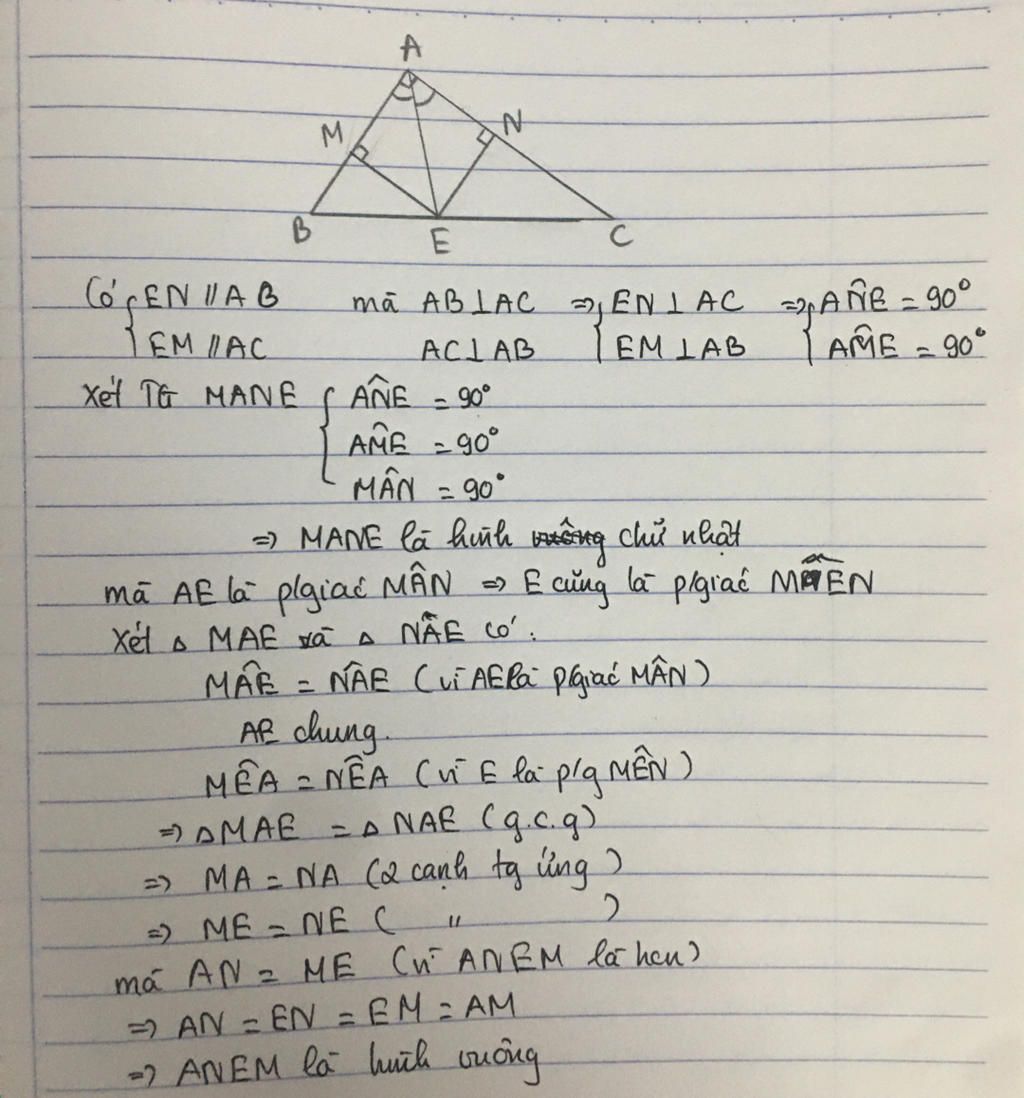 A
M
N
B
E
C
Có { EN // AB mà AB ⊥ AC => { EN ⊥ AC => { AN̂E = 90°
EM // AC AC ⊥ AB EM ⊥ AB AM̂E = 90°
Xét TG MANE { AN̂E = 90°
AM̂E = 90°
MÂN = 90°
=> MANE là hình vuông chữ nhật
mà AE là p/giác MÂN => E cũng là p/giác MÊN
Xét △ MAE và △ NÂE có :
MÂE = NÂE (vì AE là p/giác MÂN)
AE chung.
MÊA = NÊA (vì E là p/g MÊN)
=> △MAE = △NAE (g.c.g)
=> MA = NA (2 cạnh tg ứng)
=> ME = NE ( " )
mà AN = ME (vì ANEM là hcn)
=> AN = EN = EM = AM
=> ANEM là hình vuông